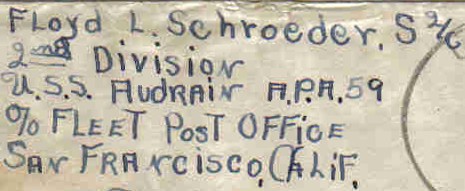 Floyd L. Schroeder, S 2/c
2nd Division
U.S.S. Audrain A.P.A. 59
% Fleet Post Office
San Francisco, Calif.